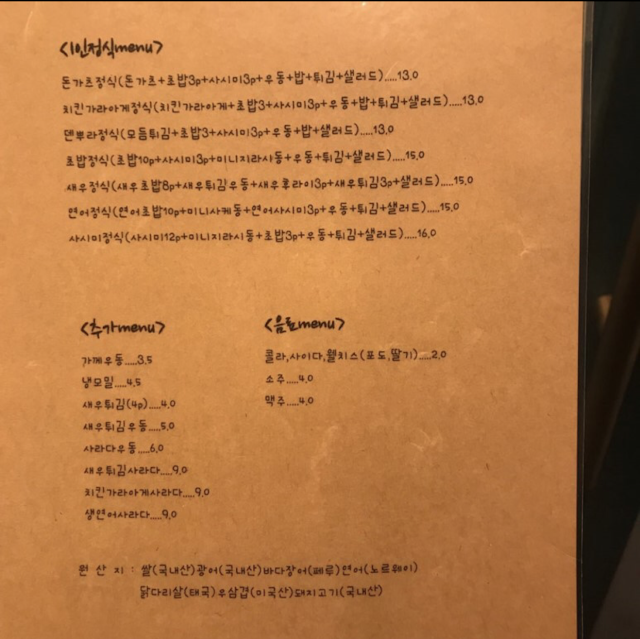 <1인정식menu>
돈가츠정식(돈가츠+초밥3p+사시미3p+우동+밥+튀김+샐러드).....13.0
치킨가라아게정식(치킨가라아게+초밥3+사시미3p+우동+밥+튀김+샐러드).....13.0
덴뿌라정식(모듬튀김+초밥3+사시미3p+우동+밥+샐러드).....13.0
초밥정식(초밥10p+사시미3p+미니지라시동+우동+튀김+샐러드).....15.0
새우정식(새우초밥8p+새우튀김우동+새우후라이3p+새우튀김3p+샐러드).....15.0
연어정식(연어초밥10p+미니사케동+연어사시미3p+우동+튀김+샐러드).....15.0
사시미정식(사시미12p+미니지라시동+초밥3p+우동+튀김+샐러드).....16.0
<추가menu>
가께우동.....3.5
냉모밀.....4.5
새우튀김(4p).....4.0
새우튀김우동.....5.0
사라다우동.....6.0
새우튀김사라다.....9.0
치킨가라아게사라다.....9.0
생연어사라다.....9.0
<음료menu>
콜라,사이다,웰치스(포도,딸기)....2.0
소주.....4.0
맥주.....4.0
원 산 지 : 쌀(국내산)광어(국내산)바다장어(페루)연어(노르웨이)
닭다리살(태국)우삼겹(미국산)돼지고기(국내산)